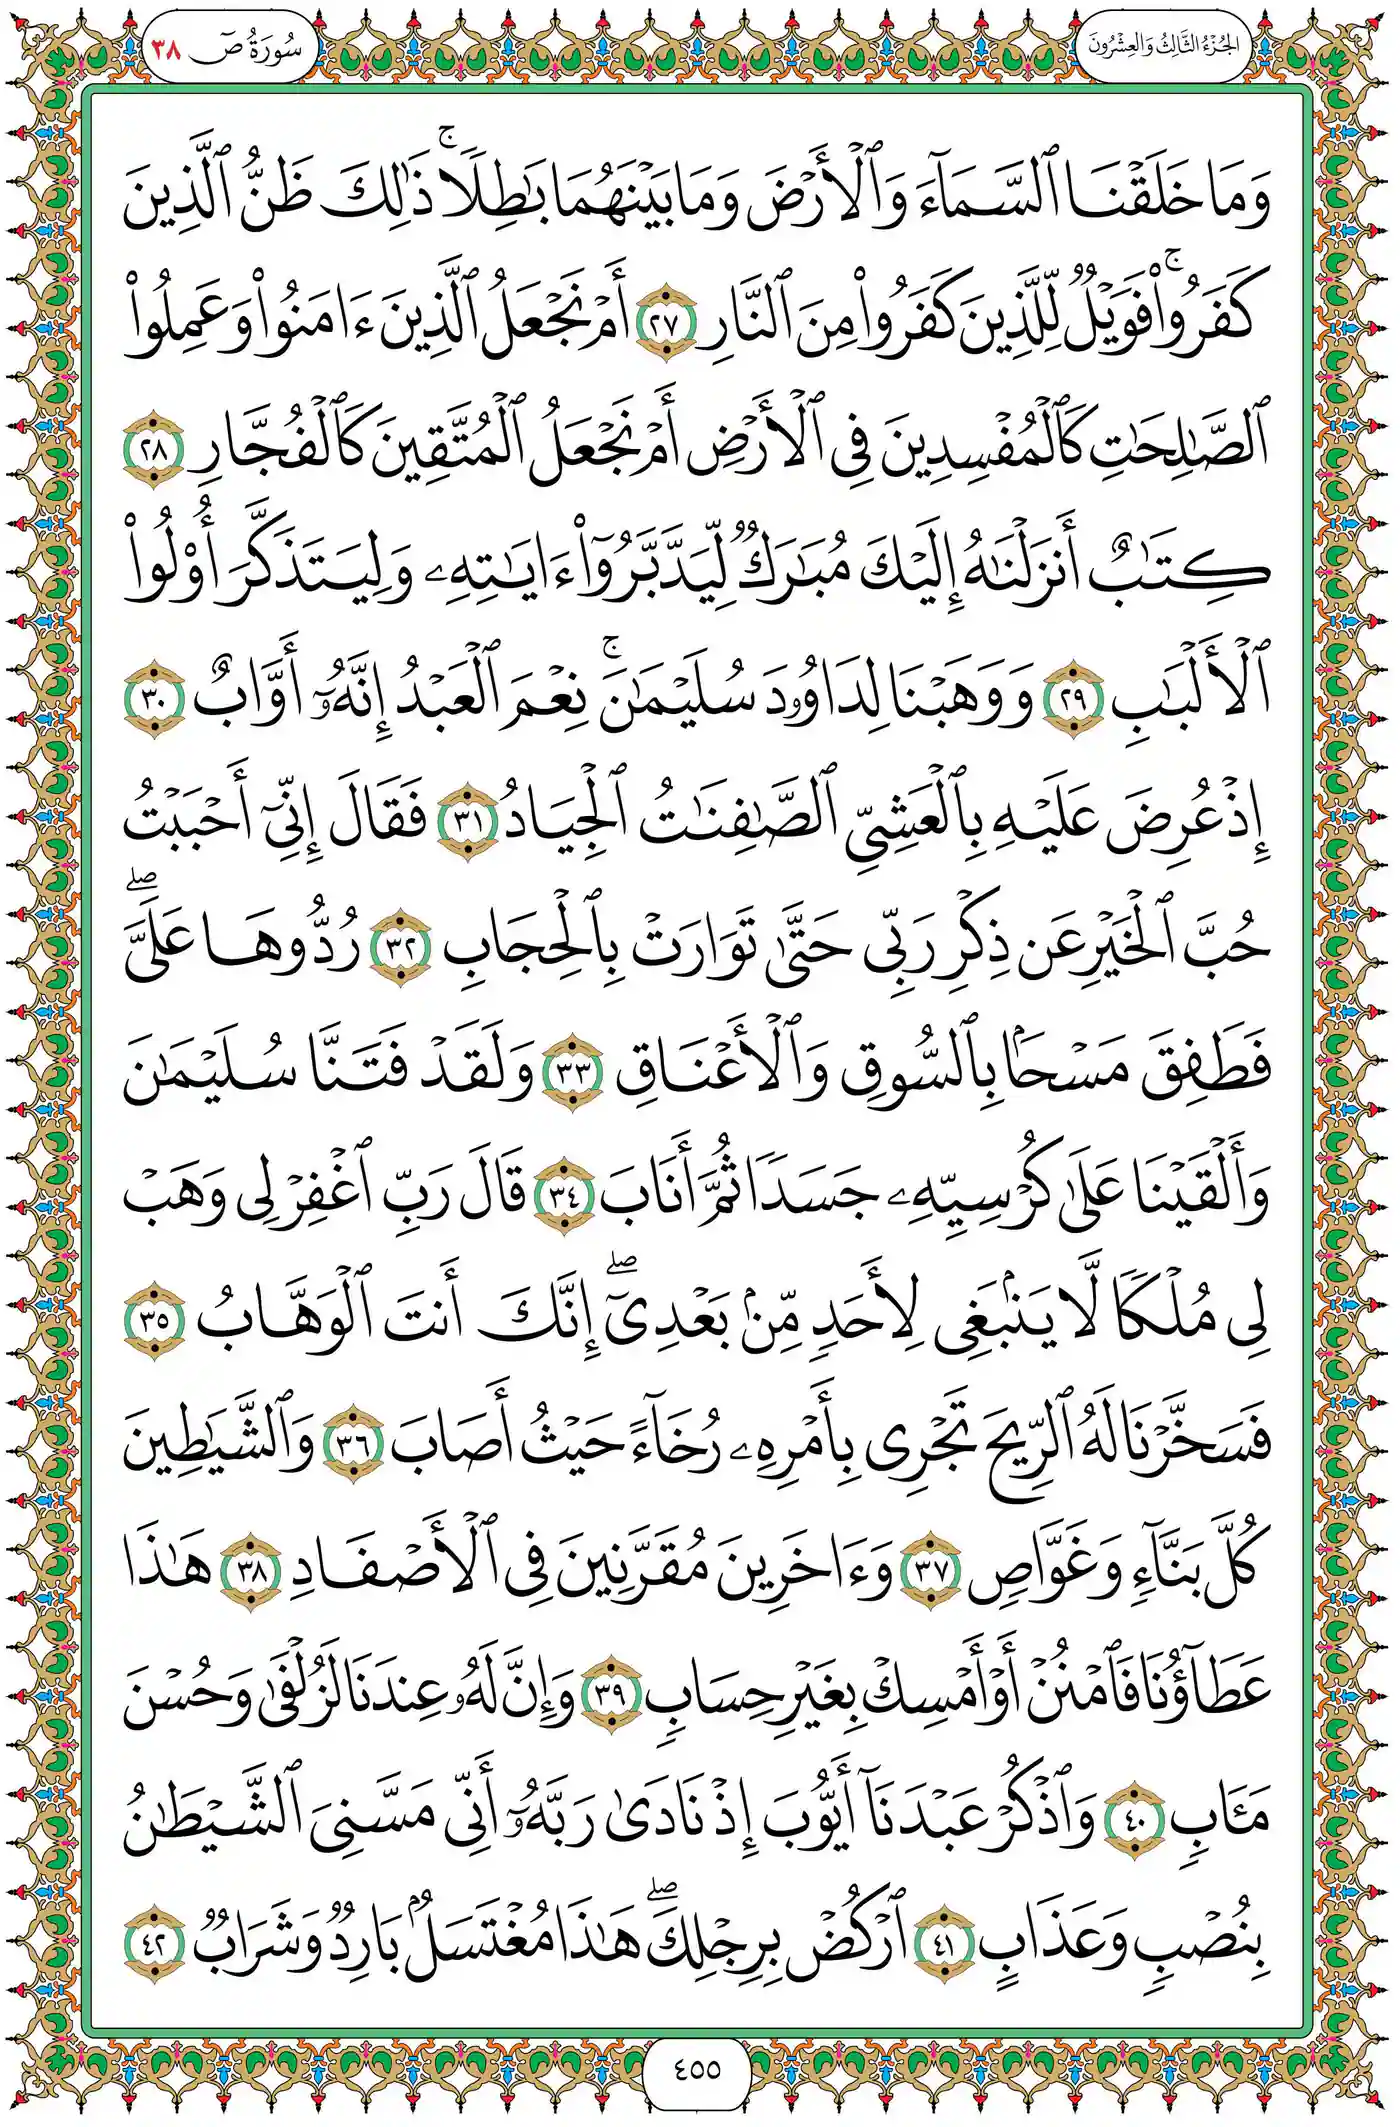 الجُزْءُ الثَّالِثُ وَالعِشْرُونَ
سُورَةُ صٓ ٣٨
وَمَا خَلَقْنَا ٱلسَّمَآءَ وَٱلْأَرْضَ وَمَا بَيْنَهُمَا بَٰطِلًاۚ ذَٰلِكَ ظَنُّ ٱلَّذِينَ
كَفَرُواْۚ فَوَيْلٌ لِّلَّذِينَ كَفَرُواْ مِنَ ٱلنَّارِ ٢٧ أَمْ نَجْعَلُ ٱلَّذِينَ ءَامَنُواْ وَعَمِلُواْ
ٱلصَّٰلِحَٰتِ كَٱلْمُفْسِدِينَ فِى ٱلْأَرْضِ أَمْ نَجْعَلُ ٱلْمُتَّقِينَ كَٱلْفُجَّارِ ٢٨
كِتَٰبٌ أَنزَلْنَٰهُ إِلَيْكَ مُبَٰرَكٌ لِّيَدَّبَّرُوٓاْ ءَايَٰتِهِۦ وَلِيَتَذَكَّرَ أُوْلُواْ
ٱلْأَلْبَٰبِ ٢٩ وَوَهَبْنَا لِدَاوُۥدَ سُلَيْمَٰنَۚ نِعْمَ ٱلْعَبْدُ إِنَّهُۥٓ أَوَّابٌ ٣٠
إِذْ عُرِضَ عَلَيْهِ بِٱلْعَشِىِّ ٱلصَّٰفِنَٰتُ ٱلْجِيَادُ ٣١ فَقَالَ إِنِّىٓ أَحْبَبْتُ
حُبَّ ٱلْخَيْرِ عَن ذِكْرِ رَبِّى حَتَّىٰ تَوَارَتْ بِٱلْحِجَابِ ٣٢ رُدُّوهَا عَلَىَّۖ
فَطَفِقَ مَسْحَۢا بِٱلسُّوقِ وَٱلْأَعْنَاقِ ٣٣ وَلَقَدْ فَتَنَّا سُلَيْمَٰنَ
وَأَلْقَيْنَا عَلَىٰ كُرْسِيِّهِۦ جَسَدًا ثُمَّ أَنَابَ ٣٤ قَالَ رَبِّ ٱغْفِرْ لِى وَهَبْ
لِى مُلْكًا لَّا يَنۢبَغِى لِأَحَدٍ مِّنۢ بَعْدِىٓۖ إِنَّكَ أَنتَ ٱلْوَهَّابُ ٣٥
فَسَخَّرْنَا لَهُ ٱلرِّيحَ تَجْرِى بِأَمْرِهِۦ رُخَآءً حَيْثُ أَصَابَ ٣٦ وَٱلشَّيَٰطِينَ
كُلَّ بَنَّآءٍ وَغَوَّاصٍ ٣٧ وَءَاخَرِينَ مُقَرَّنِينَ فِى ٱلْأَصْفَادِ ٣٨ هَٰذَا
عَطَآؤُنَا فَٱمْنُنْ أَوْ أَمْسِكْ بِغَيْرِ حِسَابٍ ٣٩ وَإِنَّ لَهُۥ عِندَنَا لَزُلْفَىٰ وَحُسْنَ
مَـَٔابٍ ٤٠ وَٱذْكُرْ عَبْدَنَآ أَيُّوبَ إِذْ نَادَىٰ رَبَّهُۥٓ أَنِّى مَسَّنِىَ ٱلشَّيْطَٰنُ
بِنُصْبٍ وَعَذَابٍ ٤١ ٱرْكُضْ بِرِجْلِكَۖ هَٰذَا مُغْتَسَلٌۢ بَارِدٌ وَشَرَابٌ ٤٢
٤٥٥